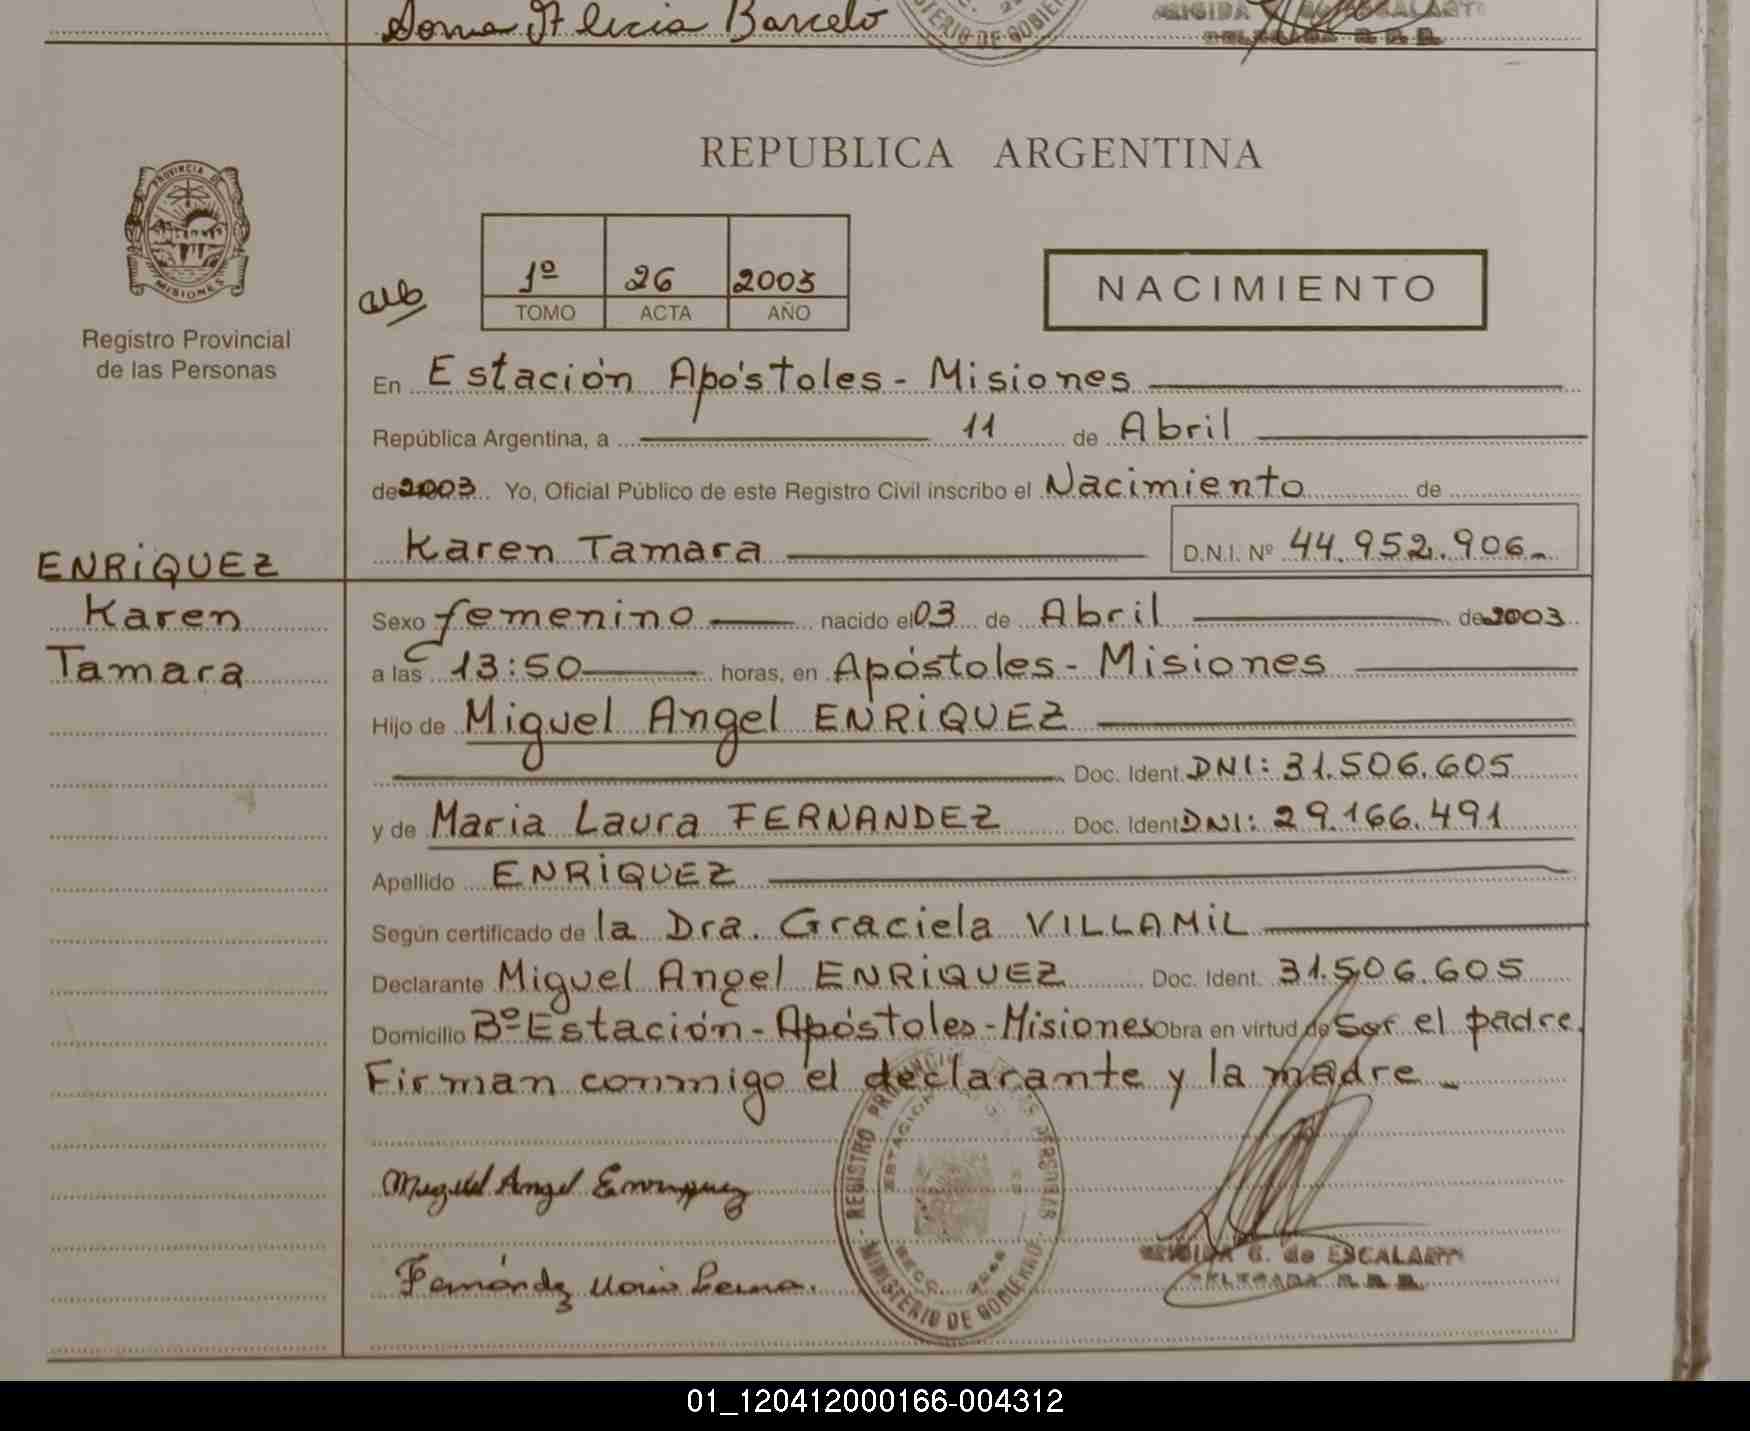 Sonia Alicia Barceló
MINISTERIO DE GOBIERNO
BRIGIDA G. de ESCALANTE
DELEGADA R.P.P.
REPUBLICA ARGENTINA
PROVINCIA DE
MISIONES
Registro Provincial
de las Personas
1º 26 2003
TOMO ACTA AÑO
NACIMIENTO
En Estación Apóstoles - Misiones
República Argentina, a 11 de Abril
de 2003 Yo, Oficial Público de este Registro Civil inscribo el Nacimiento de
Karen Tamara D.N.I. Nº 44.952.906-
ENRIQUEZ
Karen
Tamara
Sexo femenino nacido el 03 de Abril de 2003
a las 13:50 horas, en Apóstoles - Misiones
Hijo de Miguel Angel ENRIQUEZ
Doc. Ident. DNI: 31.506.605
y de Maria Laura FERNANDEZ Doc. Ident DNI: 29.166.491
Apellido ENRIQUEZ
Según certificado de la Dra. Graciela VILLAMIL
Declarante Miguel Angel ENRIQUEZ Doc. Ident. 31.506.605
Domicilio Bº Estación - Apóstoles - Misiones Obra en virtud de Ser el padre.
Firman conmigo el declarante y la madre -
Miguel Angel Enriquez
Fernández Maria Laura.
REGISTRO PROVINCIAL DE LAS PERSONAS
MINISTERIO DE GOBIERNO
ESTACION
SECC.
BRIGIDA G. de ESCALANTE
DELEGADA R.P.P.
01_120412000166-004312